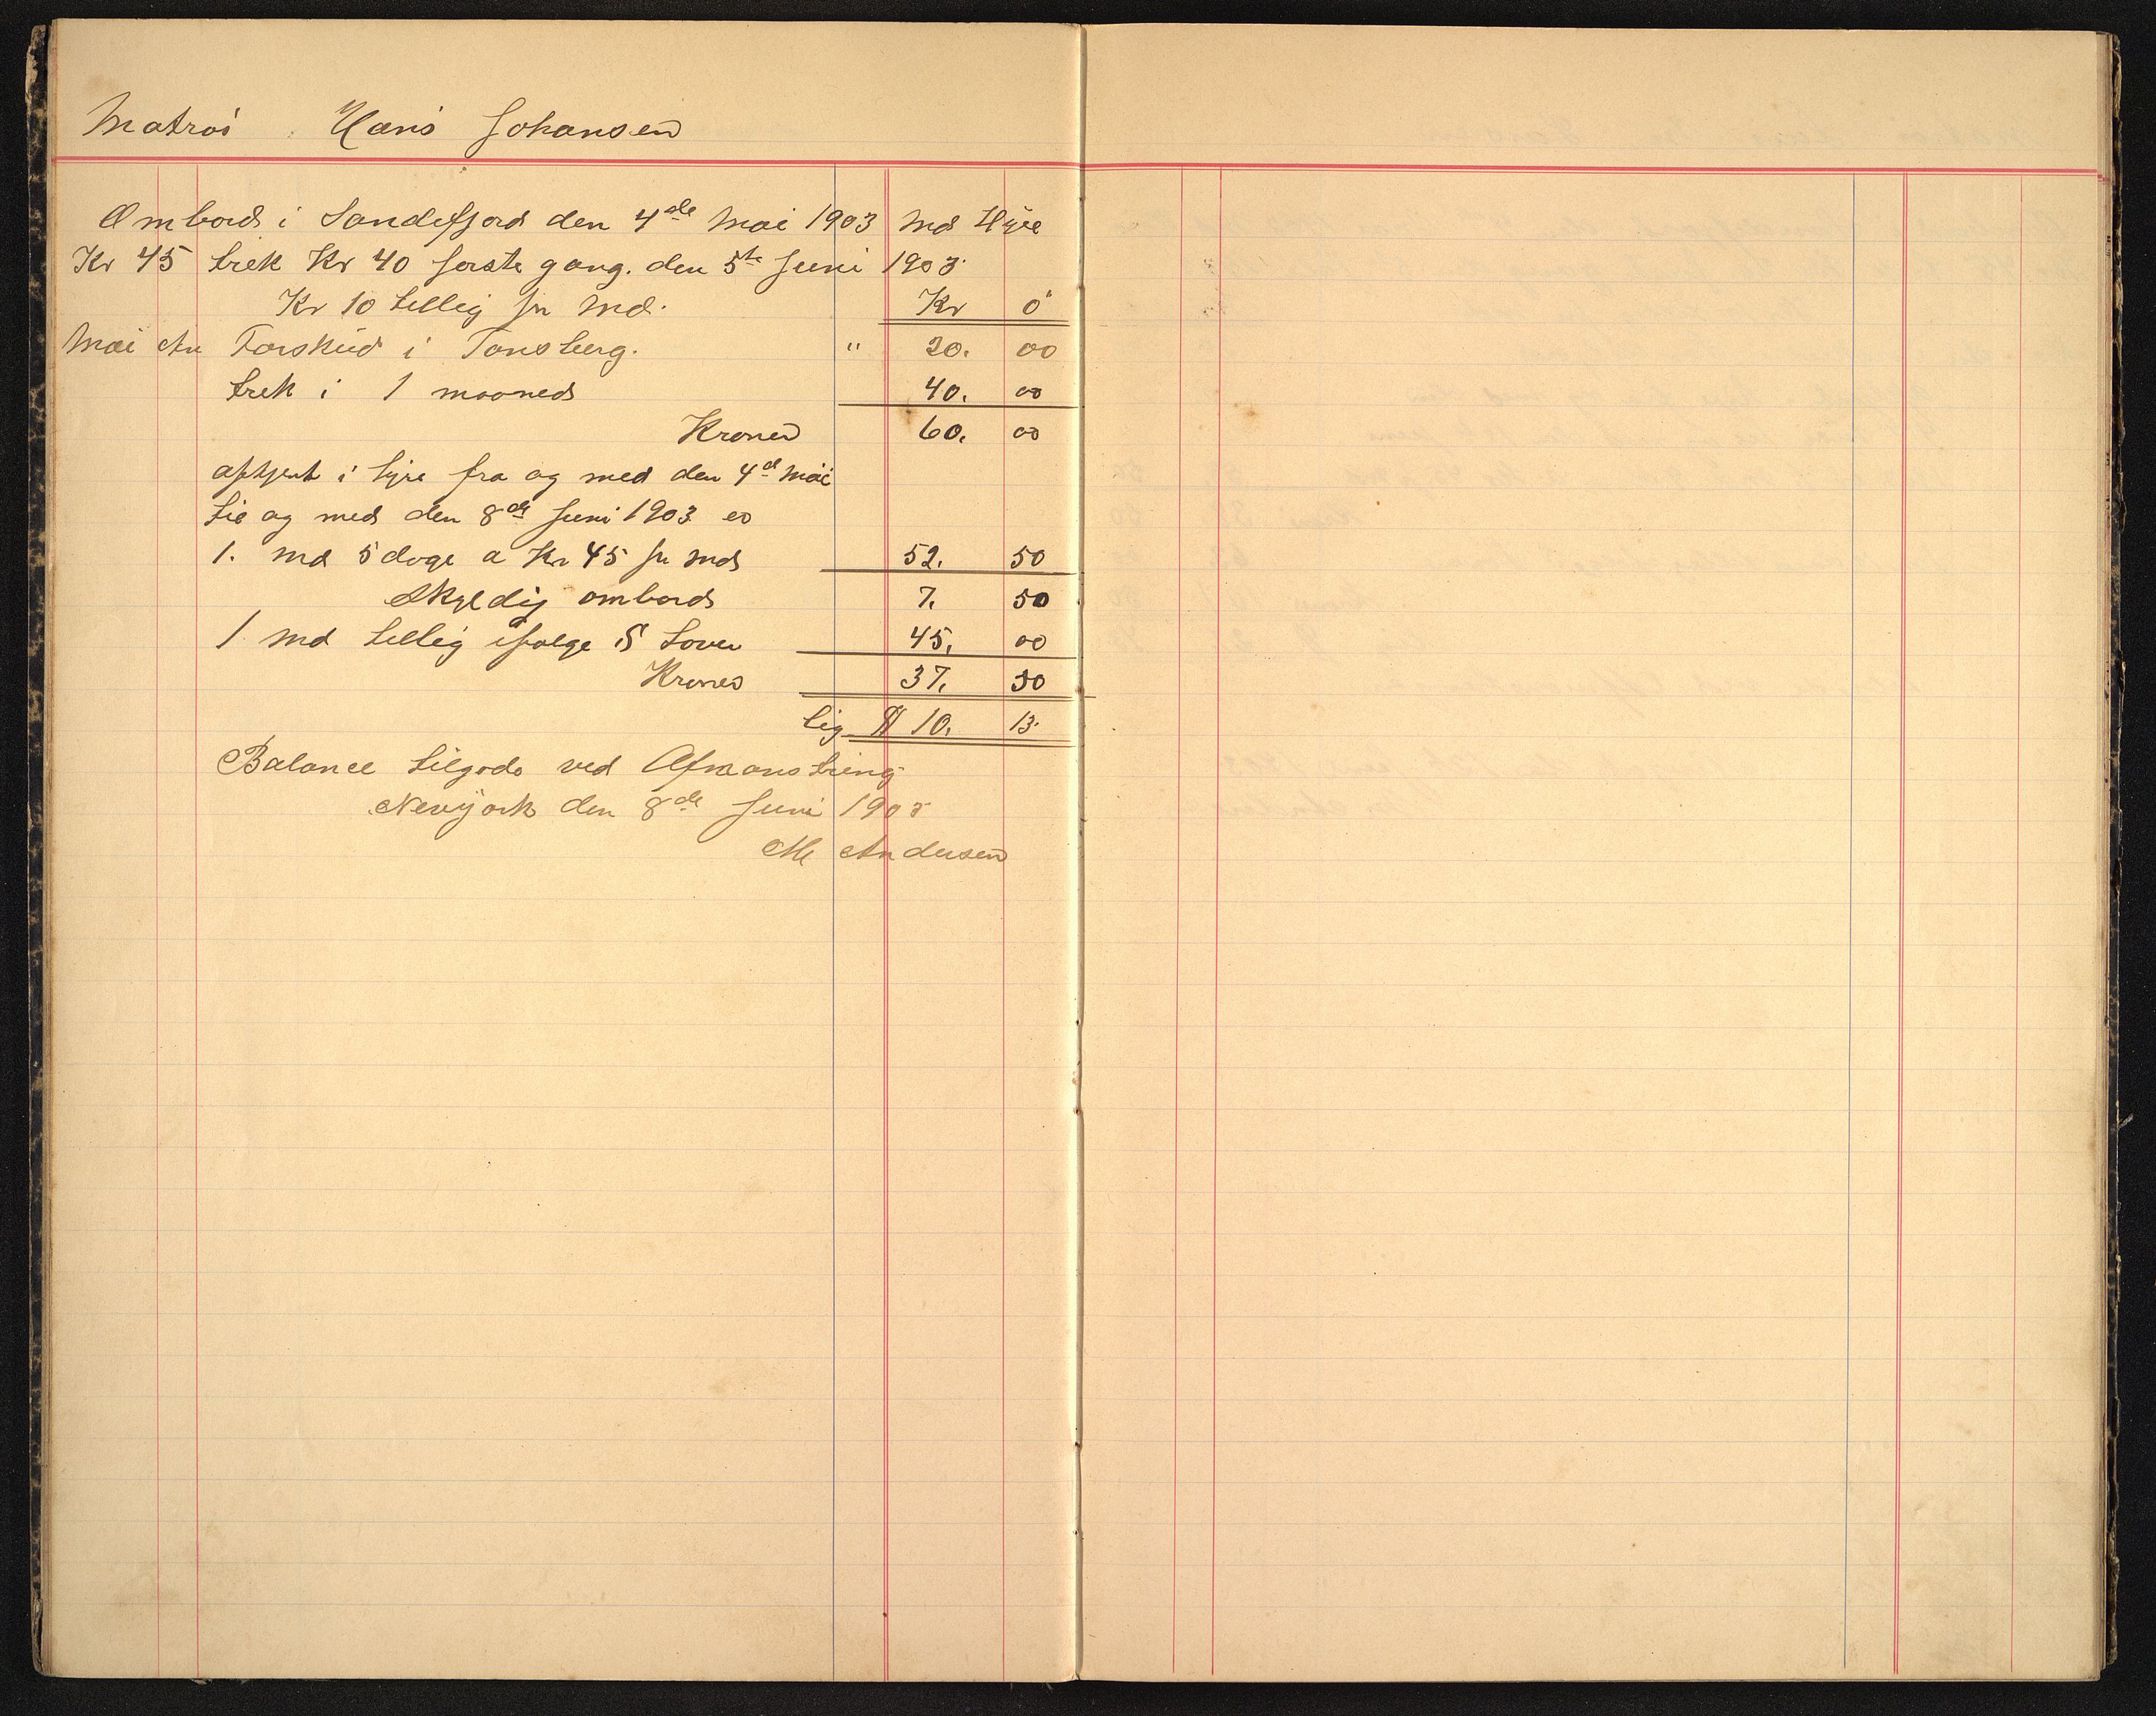 Matros Hans Johansen
Ombord i Sandefjord den 4de Mai 1903 Md Hyre
Kr 45 trek Kr 40 første gang. den 5te Juni 1903.
Kr 10 tillig pr Md. Kr Ø
Mai An Forskud i Tonsberg. " 20. 00
trek i 1 maaned 40. 00
Kroner 60. 00
aftjent i hyre fra og med den 4de Mai
til og med den 8de Juni 1903 er
1. Md 5 dage a Kr 45 pr Md 52. 50
Skyldig ombord 7. 50
1 Md tillig ifølge S Loven 45. 00
Kroner 37. 50
Lig $ 10. 13.
Balance tilgode ved Afmønstring
Newyork den 8de Juni 1903
M Andersen